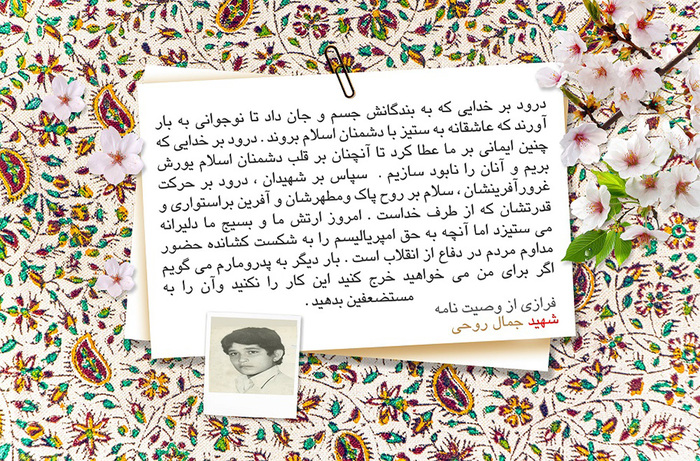 درود بر خدایی که به بندگانش جسم و جان داد تا نوجوانی به بار
آورند که عاشقانه به ستیز با دشمنان اسلام بروند . درود بر خدایی که
چنین ایمانی بر ما عطا کرد تا آنچنان بر قلب دشمنان اسلام یورش
بریم و آنان را نابود سازیم . سپاس بر شهیدان ، درود بر حرکت
غرورآفرینشان ، سلام بر روح پاک ومطهرشان و آفرین براستواری و
قدرتشان که از طرف خداست . امروز ارتش ما و بسیج ما دلیرانه
می ستیزد اما آنچه به حق امپریالیسم را به شکست کشانده حضور
مداوم مردم در دفاع از انقلاب است . بار دیگر به پدرومادرم می گویم
اگر برای من می خواهید خرج کنید این کار را نکنید وآن را به
مستضعفین بدهید .
فرازی از وصیت نامه
شهید جمال روحی